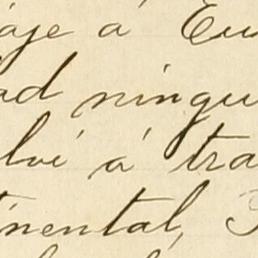 aje á Eu
ad ningu
lví á tra
tinental,